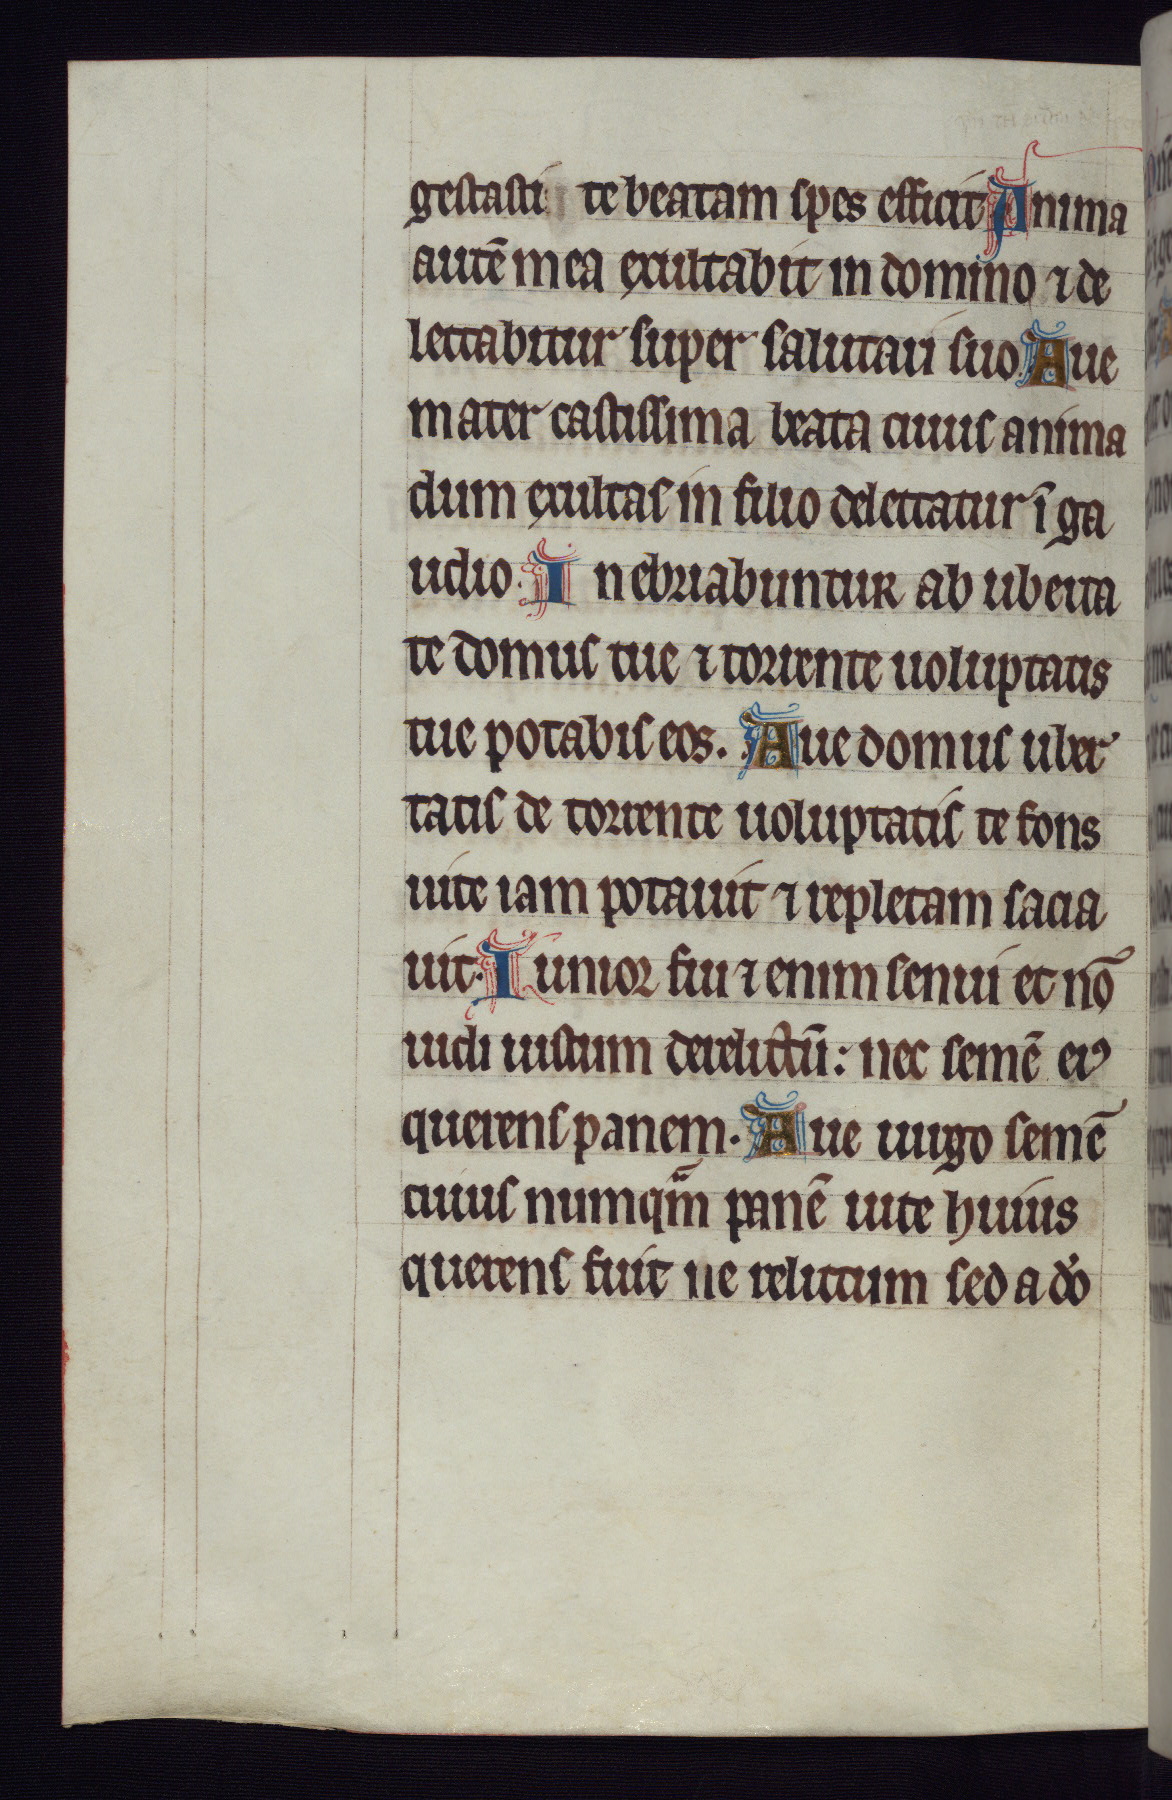 gestasti te beatam spes efficit Anima
autē mea exultabit in domino ⁊ de
lectabitur super salutari suo. Aue
mater castissima beata cuius anima
dum exultas in filio delectatur ī ga
udio. Inebriabuntur ab uberta
te domus tue ⁊ torrente uoluptatis
tue potabis eos. Aue domus uber
tatis de torrente uoluptatis te fons
uite iam potauit ⁊ repletam sacia
uit. Iunior fui ⁊ enim senui et nō
uidi iustum derelictū: nec semē eiꝰ
querens panem. Aue uirgo semē
cuius numqm̄ panē uite huius
querens fuit ne relictum sed a dō